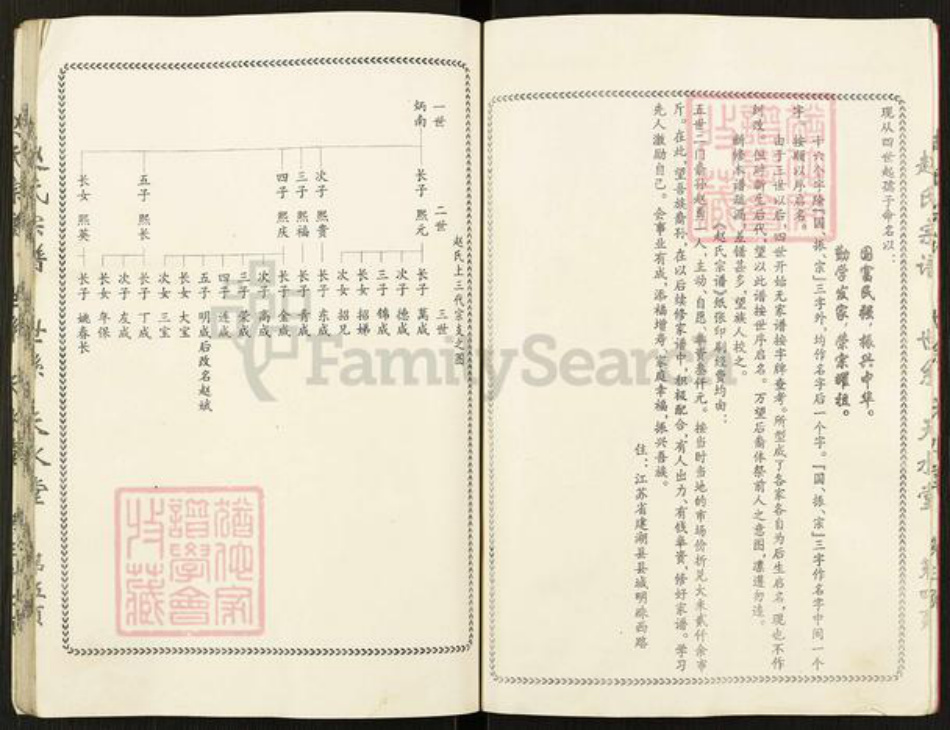 现从四世起孺子命名以：
国富民强，振兴中华。
勤学发家，荣宗耀祖。
十六个字除『国、振、宗』三字外，均作名字后一个字。『国、振、宗』三字作名字中间一个
字，按顺以序启名。
由于三世以后，四世开始无家谱按字牌查考。所型成了各家各自为后生启名，现也不作
纠改。但对新生后代，望以此谱按世序启名。万望后裔体祭前人之意图，凛遵勿违。
斟修本谱疏漏，差错甚多，望族人校之。
《赵氏宗谱》纸张印刷经费均由：
五世二门裔孙赵勇一人，主动、自愿、奉资叁仟元。按当时当地的市场价折足大米贰仟余市
斤。在此，望吾族裔孙，在以后续修家谱中，积极配合，有人出力、有钱奉资，修好家谱。学习
先人激励自己。会事业有成、添福增寿、家庭幸福，振兴吾族。
住：江苏省建湖县县城明珠西路
赵氏上三代宗支之图
一世
二世
三世
炳南
长子 熙元
次子 熙贵
三子 熙福
四子 熙庆
五子 熙长
长女 熙英
长子 万成
次子 德成
三子 锦成
长女 招娣
次女 招兄
长子 东成
长子 青成
长子 金成
次子 高成
三子 荣成
四子 连成
五子 明成后改名赵斌
长女 大宝
次女 三宝
长子 丁成
次子 友成
长女 年保
长子 姚春长
赵氏宗谱 世系 天水堂 第五页
FamilySearch